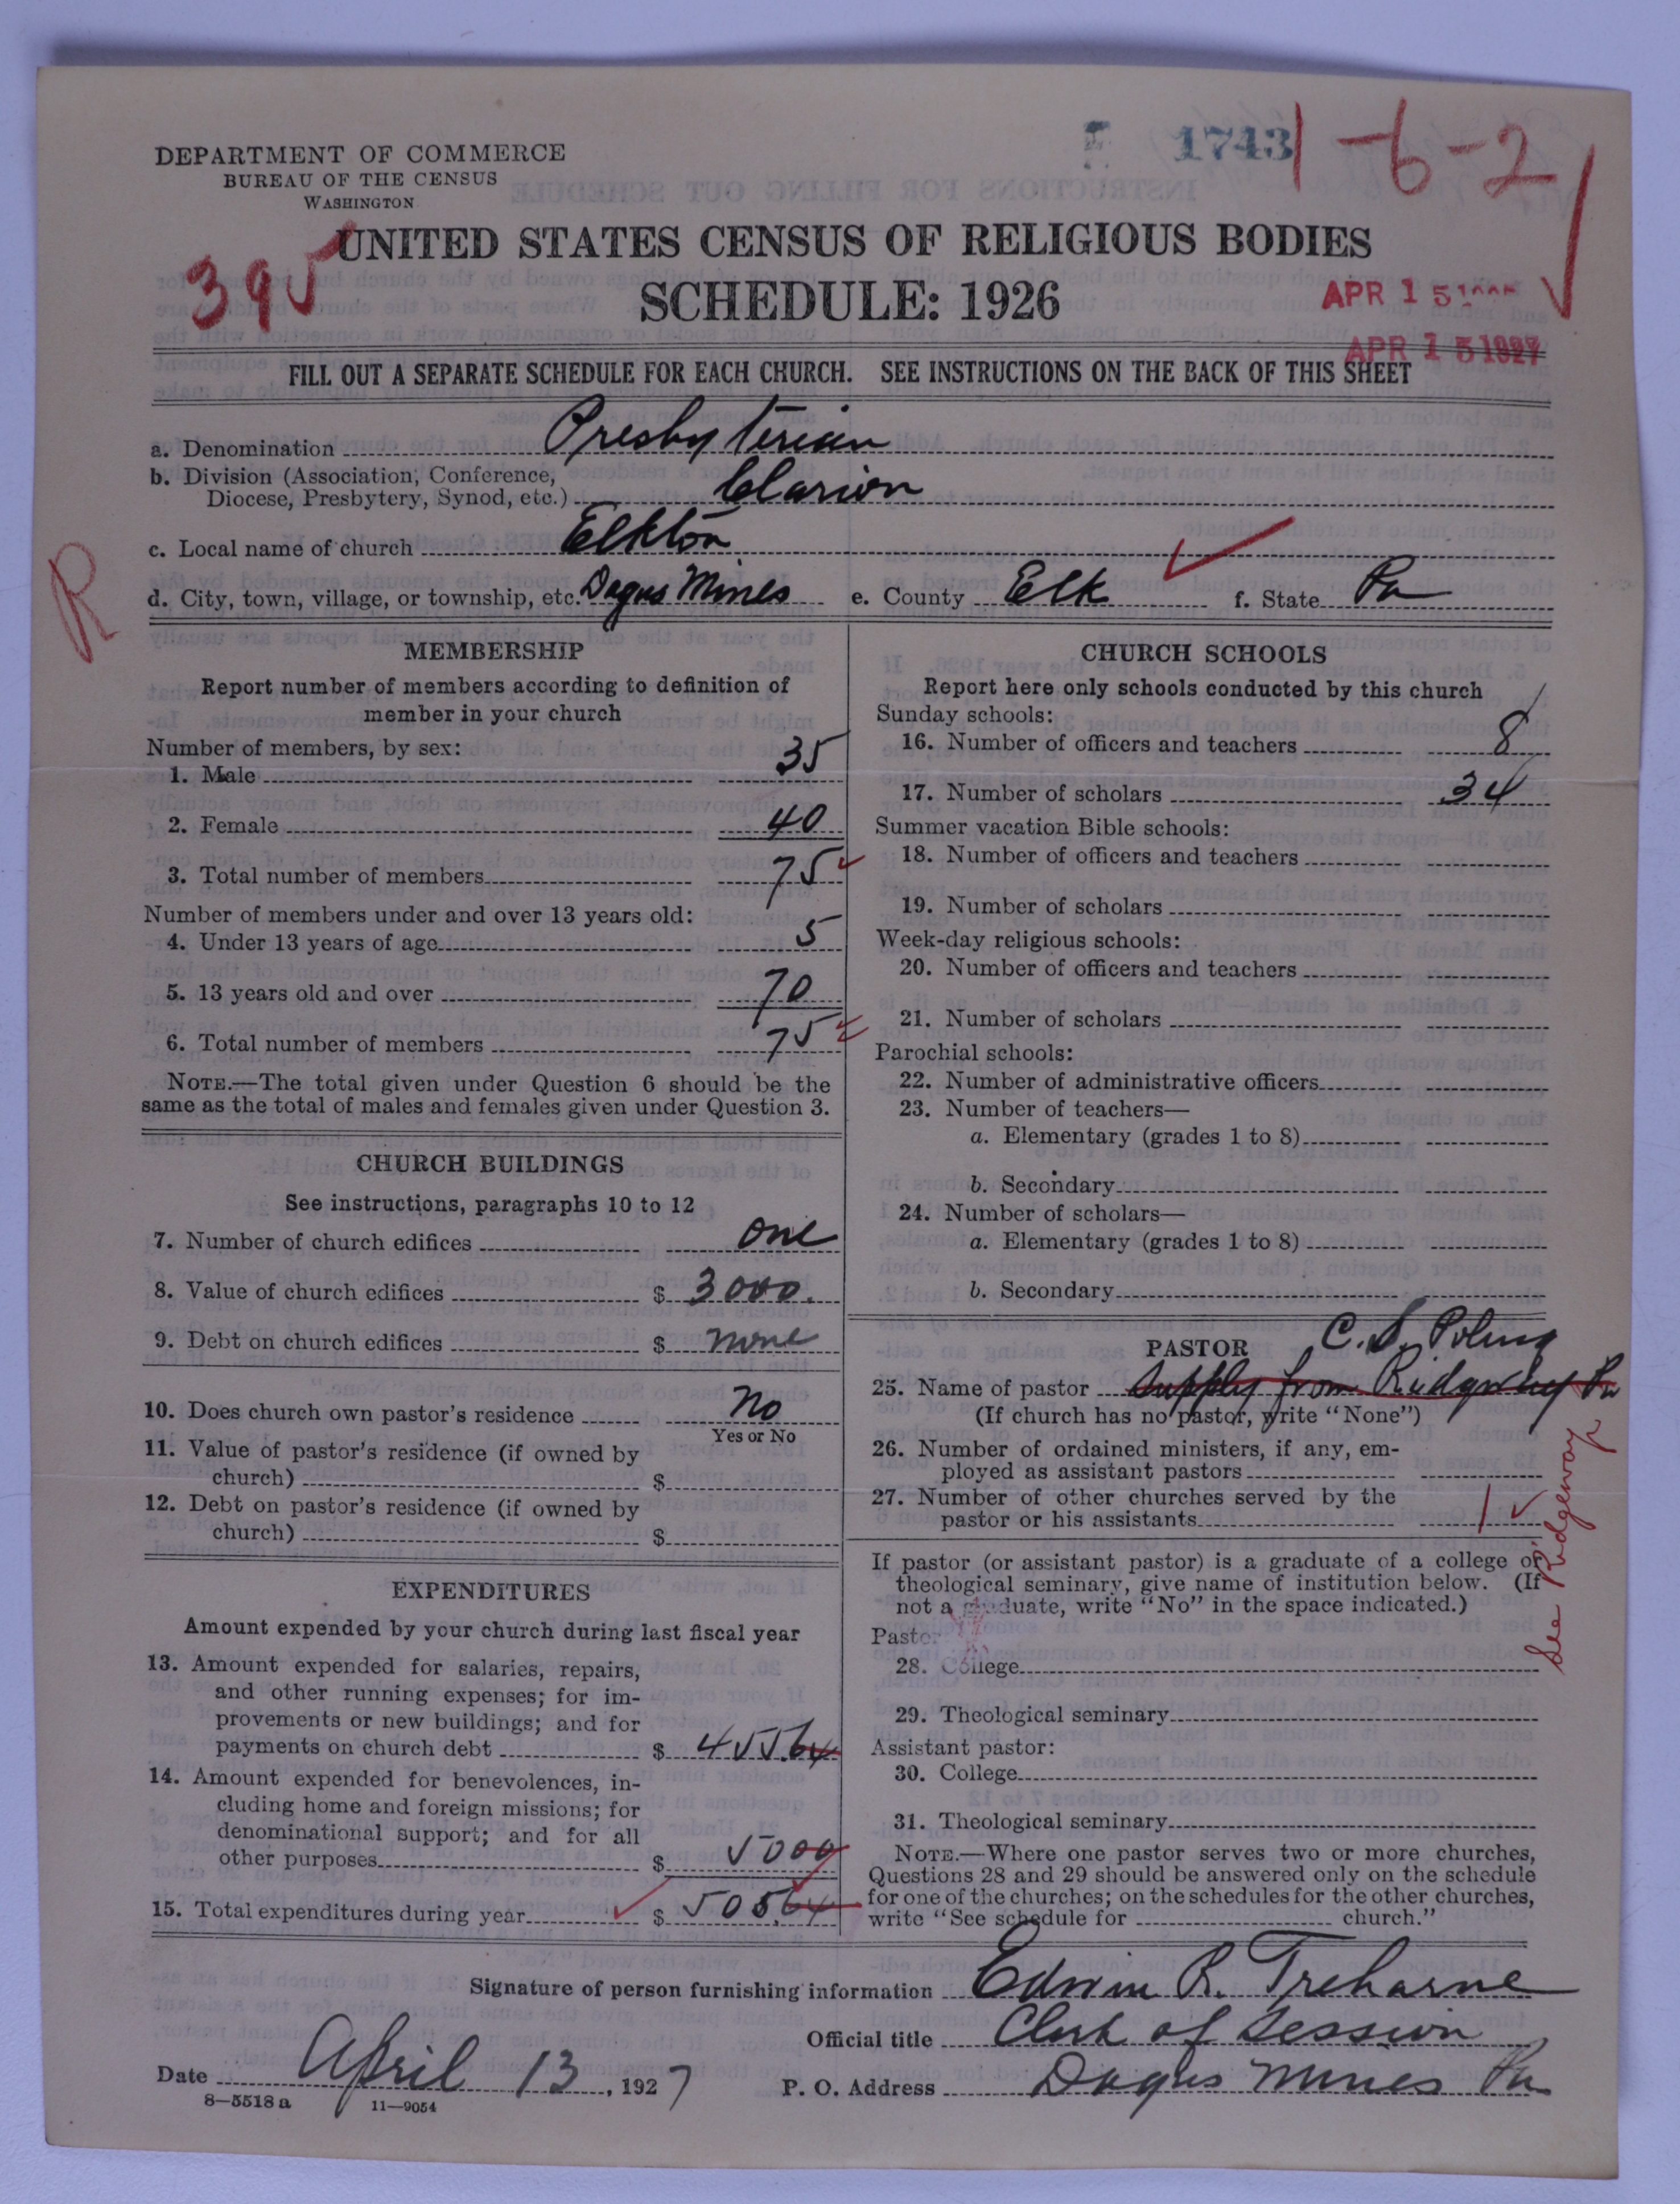 DEPARTMENT OF COMMERCE
BUREAU OF THE CENSUS
WASHINGTON
1743
1-6-2
395
UNITED STATES CENSUS OF RELIGIOUS BODIES
SCHEDULE: 1926
APR 15
APR 15 1927
FILL OUT A SEPARATE SCHEDULE FOR EACH CHURCH. SEE INSTRUCTIONS ON THE BACK OF THIS SHEET
a. Denomination Presbyterian
b. Division (Association, Conference,
Diocese, Presbytery, Synod, etc.) Clarion
c. Local name of church Elkton
R
d. City, town, village, or township, etc. Dagus Mines e. County Elk f. State Pa
MEMBERSHIP
Report number of members according to definition of
member in your church
Number of members, by sex:
1. Male 35
2. Female 40
3. Total number of members 75
Number of members under and over 13 years old:
4. Under 13 years of age 5
5. 13 years old and over 70
6. Total number of members 75
NOTE.—The total given under Question 6 should be the
same as the total of males and females given under Question 3.
CHURCH BUILDINGS
See instructions, paragraphs 10 to 12
7. Number of church edifices one
8. Value of church edifices $ 3000.
9. Debt on church edifices $ none
10. Does church own pastor's residence No
Yes or No
11. Value of pastor's residence (if owned by
church) $
12. Debt on pastor's residence (if owned by
church) $
EXPENDITURES
Amount expended by your church during last fiscal year
13. Amount expended for salaries, repairs,
and other running expenses; for im-
provements or new buildings; and for
payments on church debt $ 455.64
14. Amount expended for benevolences, in-
cluding home and foreign missions; for
denominational support; and for all
other purposes $ 5000
15. Total expenditures during year $ 505.64
CHURCH SCHOOLS
Report here only schools conducted by this church
Sunday schools:
16. Number of officers and teachers 8
17. Number of scholars 34
Summer vacation Bible schools:
18. Number of officers and teachers
19. Number of scholars
Week-day religious schools:
20. Number of officers and teachers
21. Number of scholars
Parochial schools:
22. Number of administrative officers
23. Number of teachers—
a. Elementary (grades 1 to 8)
b. Secondary
24. Number of scholars—
a. Elementary (grades 1 to 8)
b. Secondary
PASTOR C. S. Poling
25. Name of pastor supply from Ridgway Pa
(If church has no pastor, write "None")
26. Number of ordained ministers, if any, em-
ployed as assistant pastors
27. Number of other churches served by the
pastor or his assistants 1
See Ridgeway
If pastor (or assistant pastor) is a graduate of a college or
theological seminary, give name of institution below. (If
not a graduate, write "No" in the space indicated.)
Pastor:
28. College
29. Theological seminary
Assistant pastor:
30. College
31. Theological seminary
NOTE.—Where one pastor serves two or more churches,
Questions 28 and 29 should be answered only on the schedule
for one of the churches; on the schedules for the other churches,
write "See schedule for church."
Signature of person furnishing information Edwin R. Treharne
Official title Clerk of Session
Date April 13, 1927 P. O. Address Dagus Mines Pa
8—5518 a 11—9054